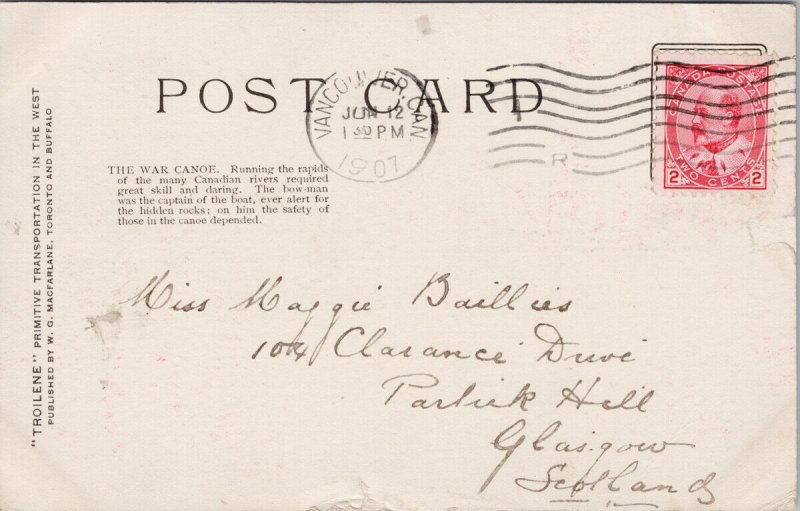 POST CARD
VANCOUVER, CAN.
JUN 12
1 30 PM
1907
R
CANADA POSTAGE
2 TWO CENTS 2
THE WAR CANOE. Running the rapids
of the many Canadian rivers required
great skill and daring. The bow-man
was the captain of the boat, ever alert for
the hidden rocks; on him the safety of
those in the canoe depended.
"TROILENE" PRIMITIVE TRANSPORTATION IN THE WEST
PUBLISHED BY W. G. MACFARLANE, TORONTO AND BUFFALO
Miss Maggie Baillies
104 Clarance Drive
Partick Hill
Glasgow
Scotland